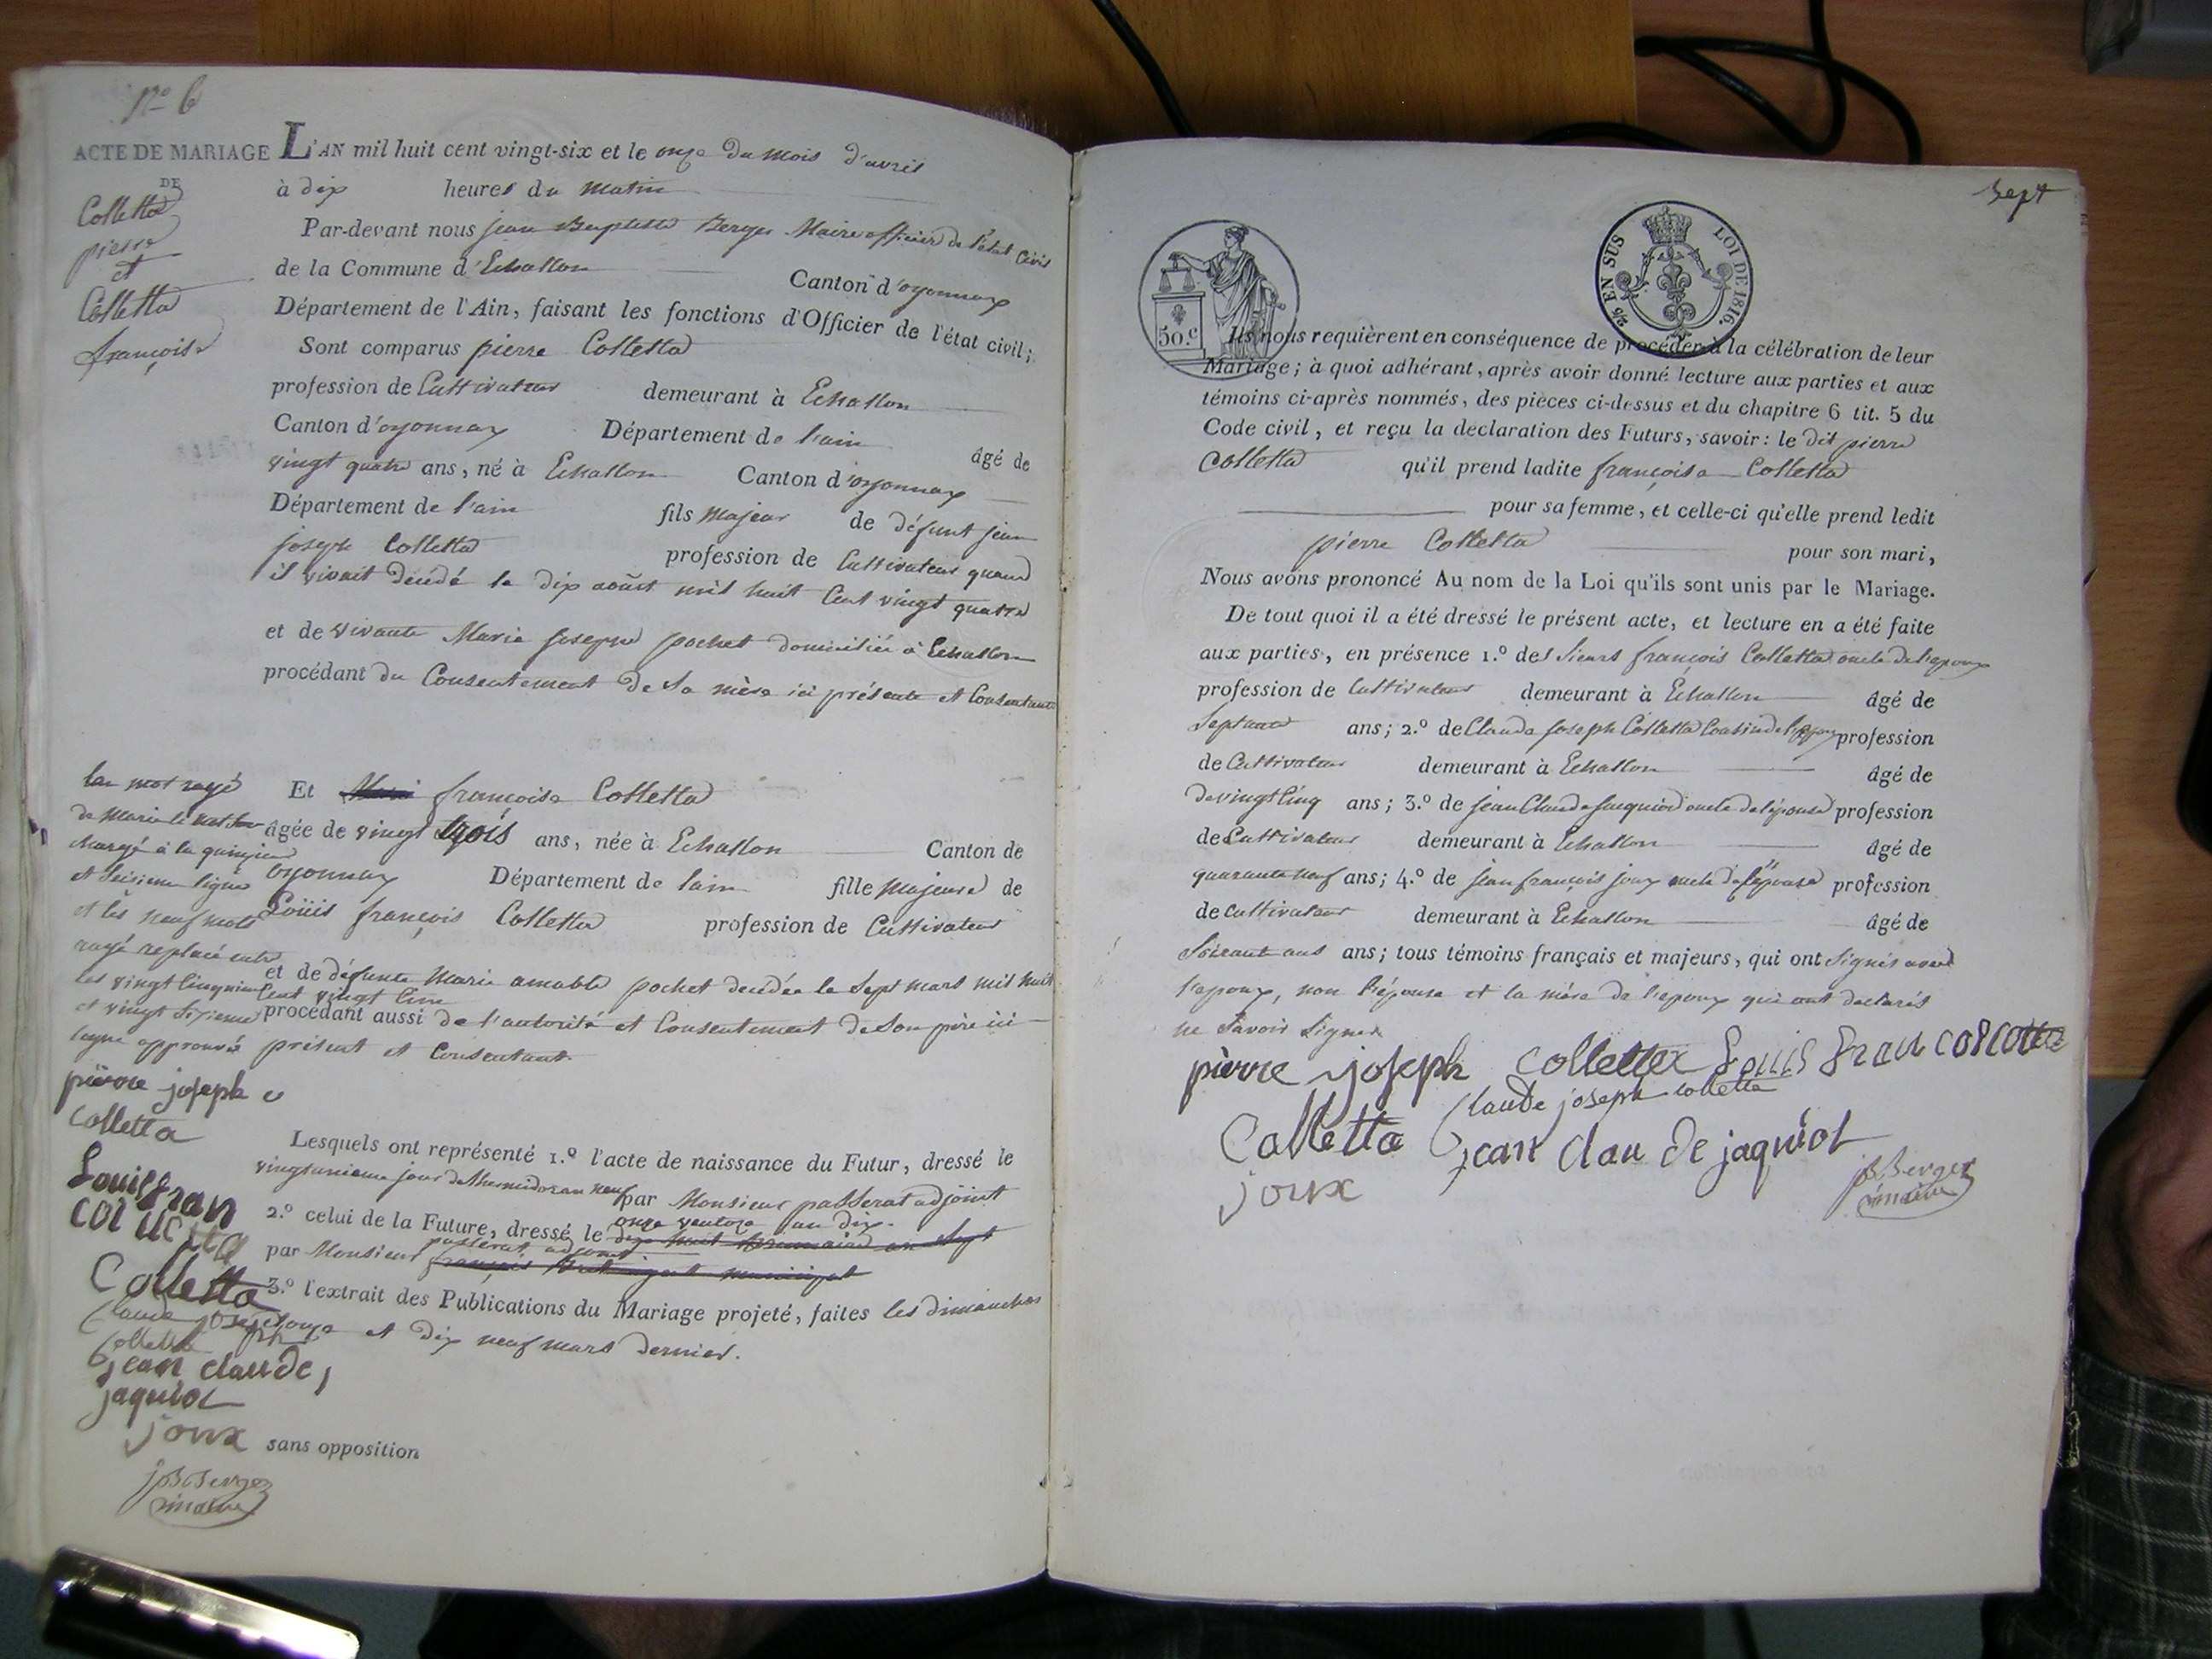 N.o 6
ACTE DE MARIAGE
DE
Colletta
pierre
et
Colletta
françoise
L'AN mil huit cent vingt-six et le onze du mois d'avril
à dix heures du matin
Par-devant nous jean Baptiste Berger Maire officier de l'état Civil
de la Commune d'Echallon Canton d'oyonnax
Département de l'Ain, faisant les fonctions d'Officier de l'état civil;
Sont comparus pierre Colletta
profession de Cultivateur demeurant à Echallon
Canton d'oyonnax Département de l'ain âgé de
vingt quatre ans, né à Echallon Canton d'oyonnax
Département de l'ain fils majeur de défunt jean
joseph Colletta profession de Cultivateur quand
il vivait décédé le dix août mil huit Cent vingt quatre
et de vivante Marie josephe pochet domiciliée à Echallon
procédant du Consentement de Sa mère ici présente et Consentante
Et françoise Colletta
âgée de vingt trois ans, née à Echallon Canton de
oyonnax Département de lain fille majeure de
Loüis françois Colletta profession de Cultivateur
et de défunte Marie amable pochet decédée le Sept mars mil huit
Cent vingt
procédant aussi de l'autorité et Consentement de Son père ici
présent et Consentant
Lesquels ont représenté 1.º l'acte de naissance du Futur, dressé le
vingtunieme jour de thermidor an neuf par Monsieur passerat adjoint
2.º celui de la Future, dressé le onze ventose an dix
par Monsieur passerat adjoint
3.º l'extrait des Publications du Mariage projeté, faites les dimanches
douze et dix neuf mars dernier.
sans opposition
mot rayé
de Marie
à la quinzieme
et Seizieme ligne
et les neuf mots
rayé replacé entre
les vingt Cinquieme
et vingt Sixieme
ligne approuvés
pierre joseph
colletta
Louis fran
Colletta
Claude joseph
Colletta
jean claude
jaquiot
joux
JB Berger
maire
Sept
50.c
2/5 EN SUS LOI DE 1816.
Ils nous requièrent en conséquence de procéder à la célébration de leur
Mariage; à quoi adhérant, après avoir donné lecture aux parties et aux
témoins ci-après nommés, des pièces ci-dessus et du chapitre 6 tit. 5 du
Code civil, et reçu la declaration des Futurs, savoir: le dit pierre
Colletta qu'il prend ladite françoise Colletta
pour sa femme, et celle-ci qu'elle prend ledit
pierre Colletta pour son mari,
Nous avons prononcé Au nom de la Loi qu'ils sont unis par le Mariage.
De tout quoi il a été dressé le présent acte, et lecture en a été faite
aux parties, en présence 1.º des Sieurs françois Colletta oncle de l'epoux
profession de Cultivateur demeurant à Echallon âgé de
Septante ans; 2.º de Claude joseph Colletta Cousin de l'epoux profession
de Cultivateur demeurant à Echallon âgé de
de vingt Cinq ans; 3.º de jean Claude jacquiod oncle de l'épouse profession
de Cultivateur demeurant à Echallon âgé de
quarante neuf ans; 4.º de jean françois joux oncle de l'épouse profession
de cultivateur demeurant à Echallon âgé de
Soixante ans ans; tous témoins français et majeurs, qui ont Signés avec
l'epoux, non l'épouse et la mère de l'epoux qui ont declarés
ne Savoir Signer
pierre joseph colletta Louis fran colletta
Colletta Claude joseph colletta
jean clau de jaquiot
joux
JB Berger
maire